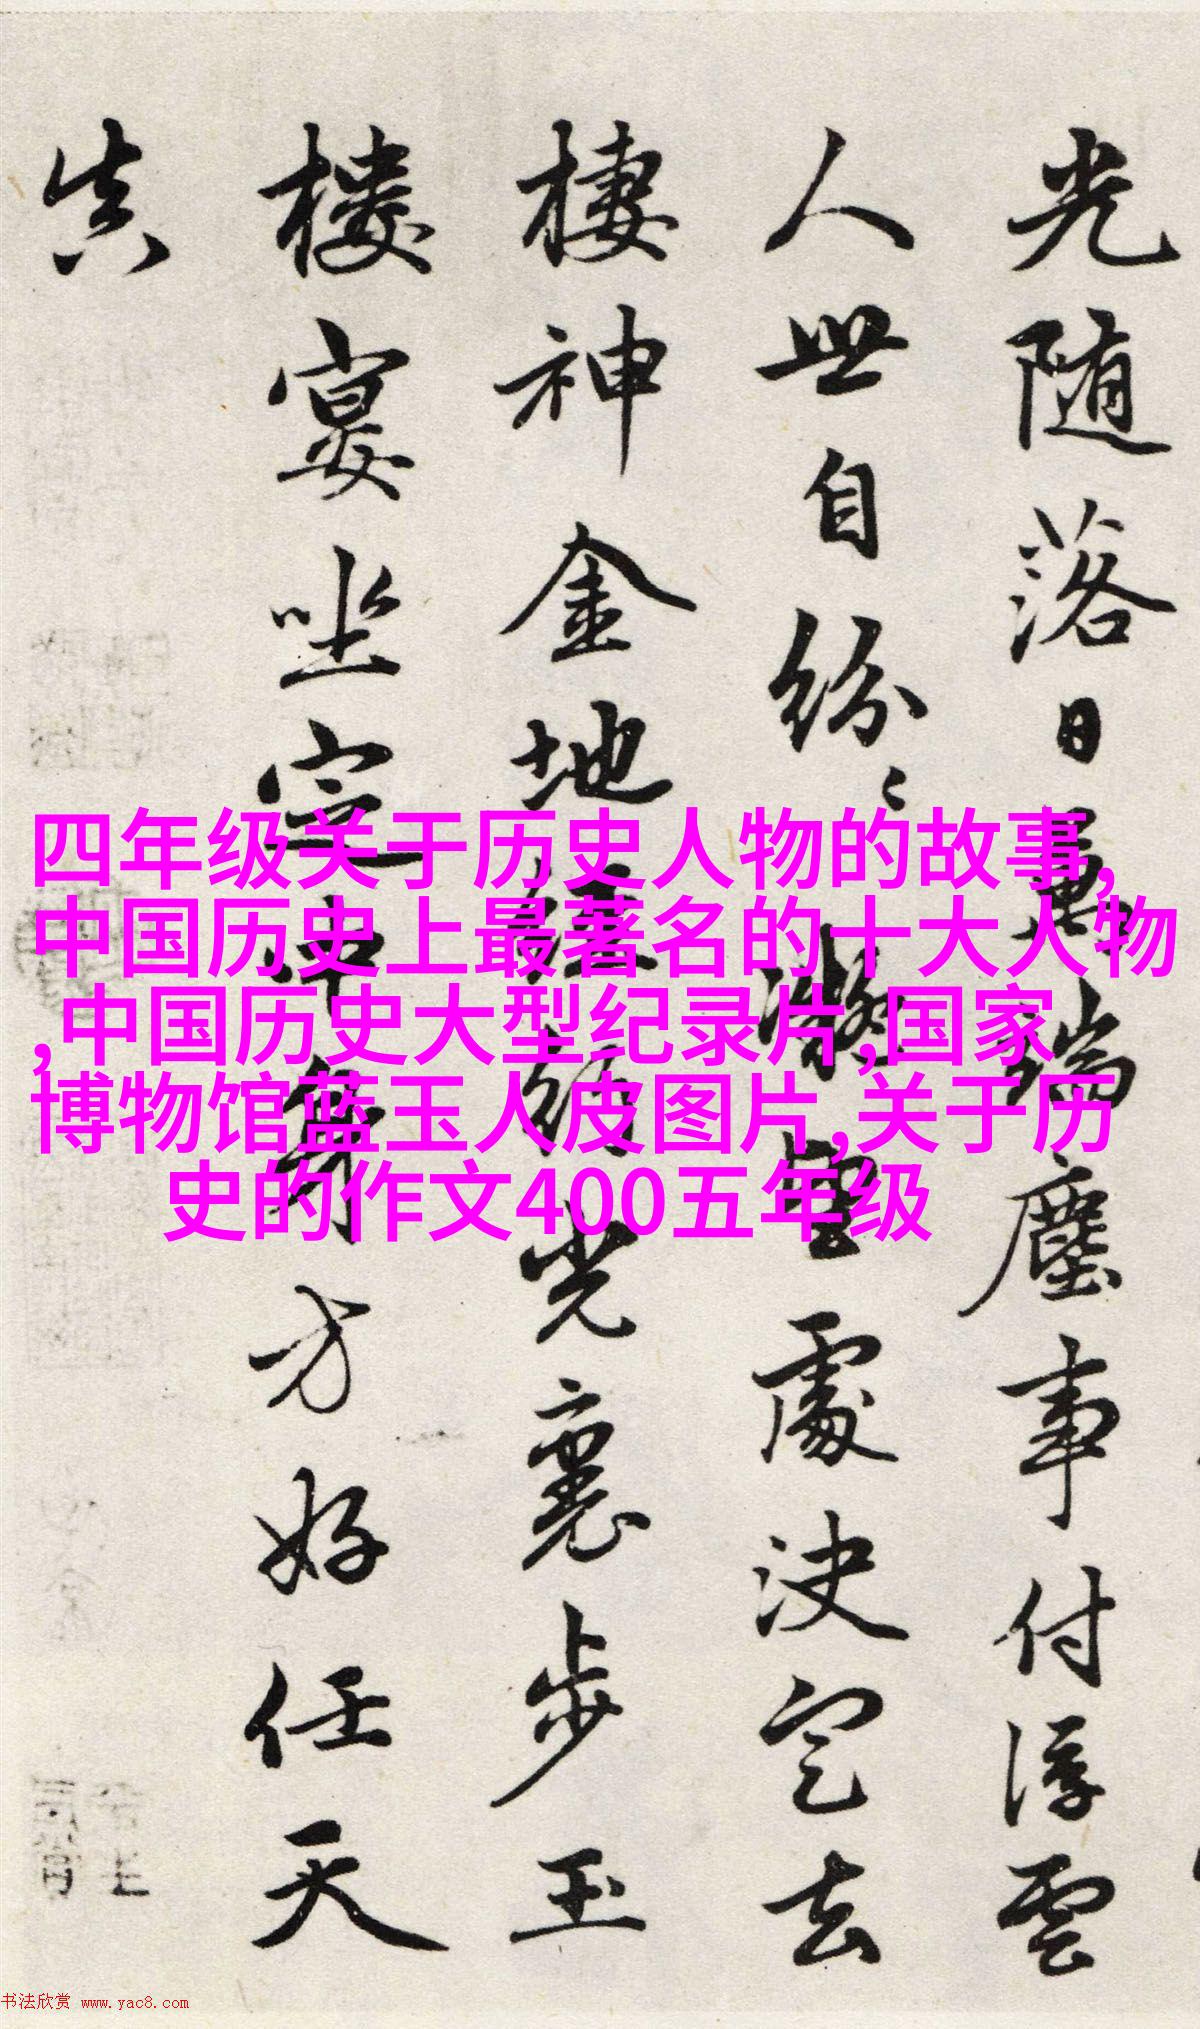 光随落日萬端塵事付浮雲
人世自紛〻凝望處決定去
棲神金地經行光裏步玉
樓宴坐定中身方好任天
真
四年级关于历史人物的故事,
中国历史上最著名的十大人物
,中国历史大型纪录片,国家
博物馆蓝玉人皮图片,关于历
史的作文400五年级
书法欣赏 www.yac8.com